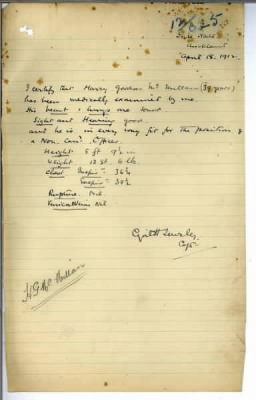 12625
Auckland
April 15. 1912.
I certify that Harry Gordon Mc Millan (39 years)
has been medically examined by me
His heart & lungs are sound
Sight and Hearing good
and he is in every way fit for the position of
a Non. Com. Officer.
Height 5 ft
Weight 12 st 6 lb
Chest Inspir =
Expir = 34½
Rupture Nil
Varicose Veins Nil
Capt
H G Mc Millan